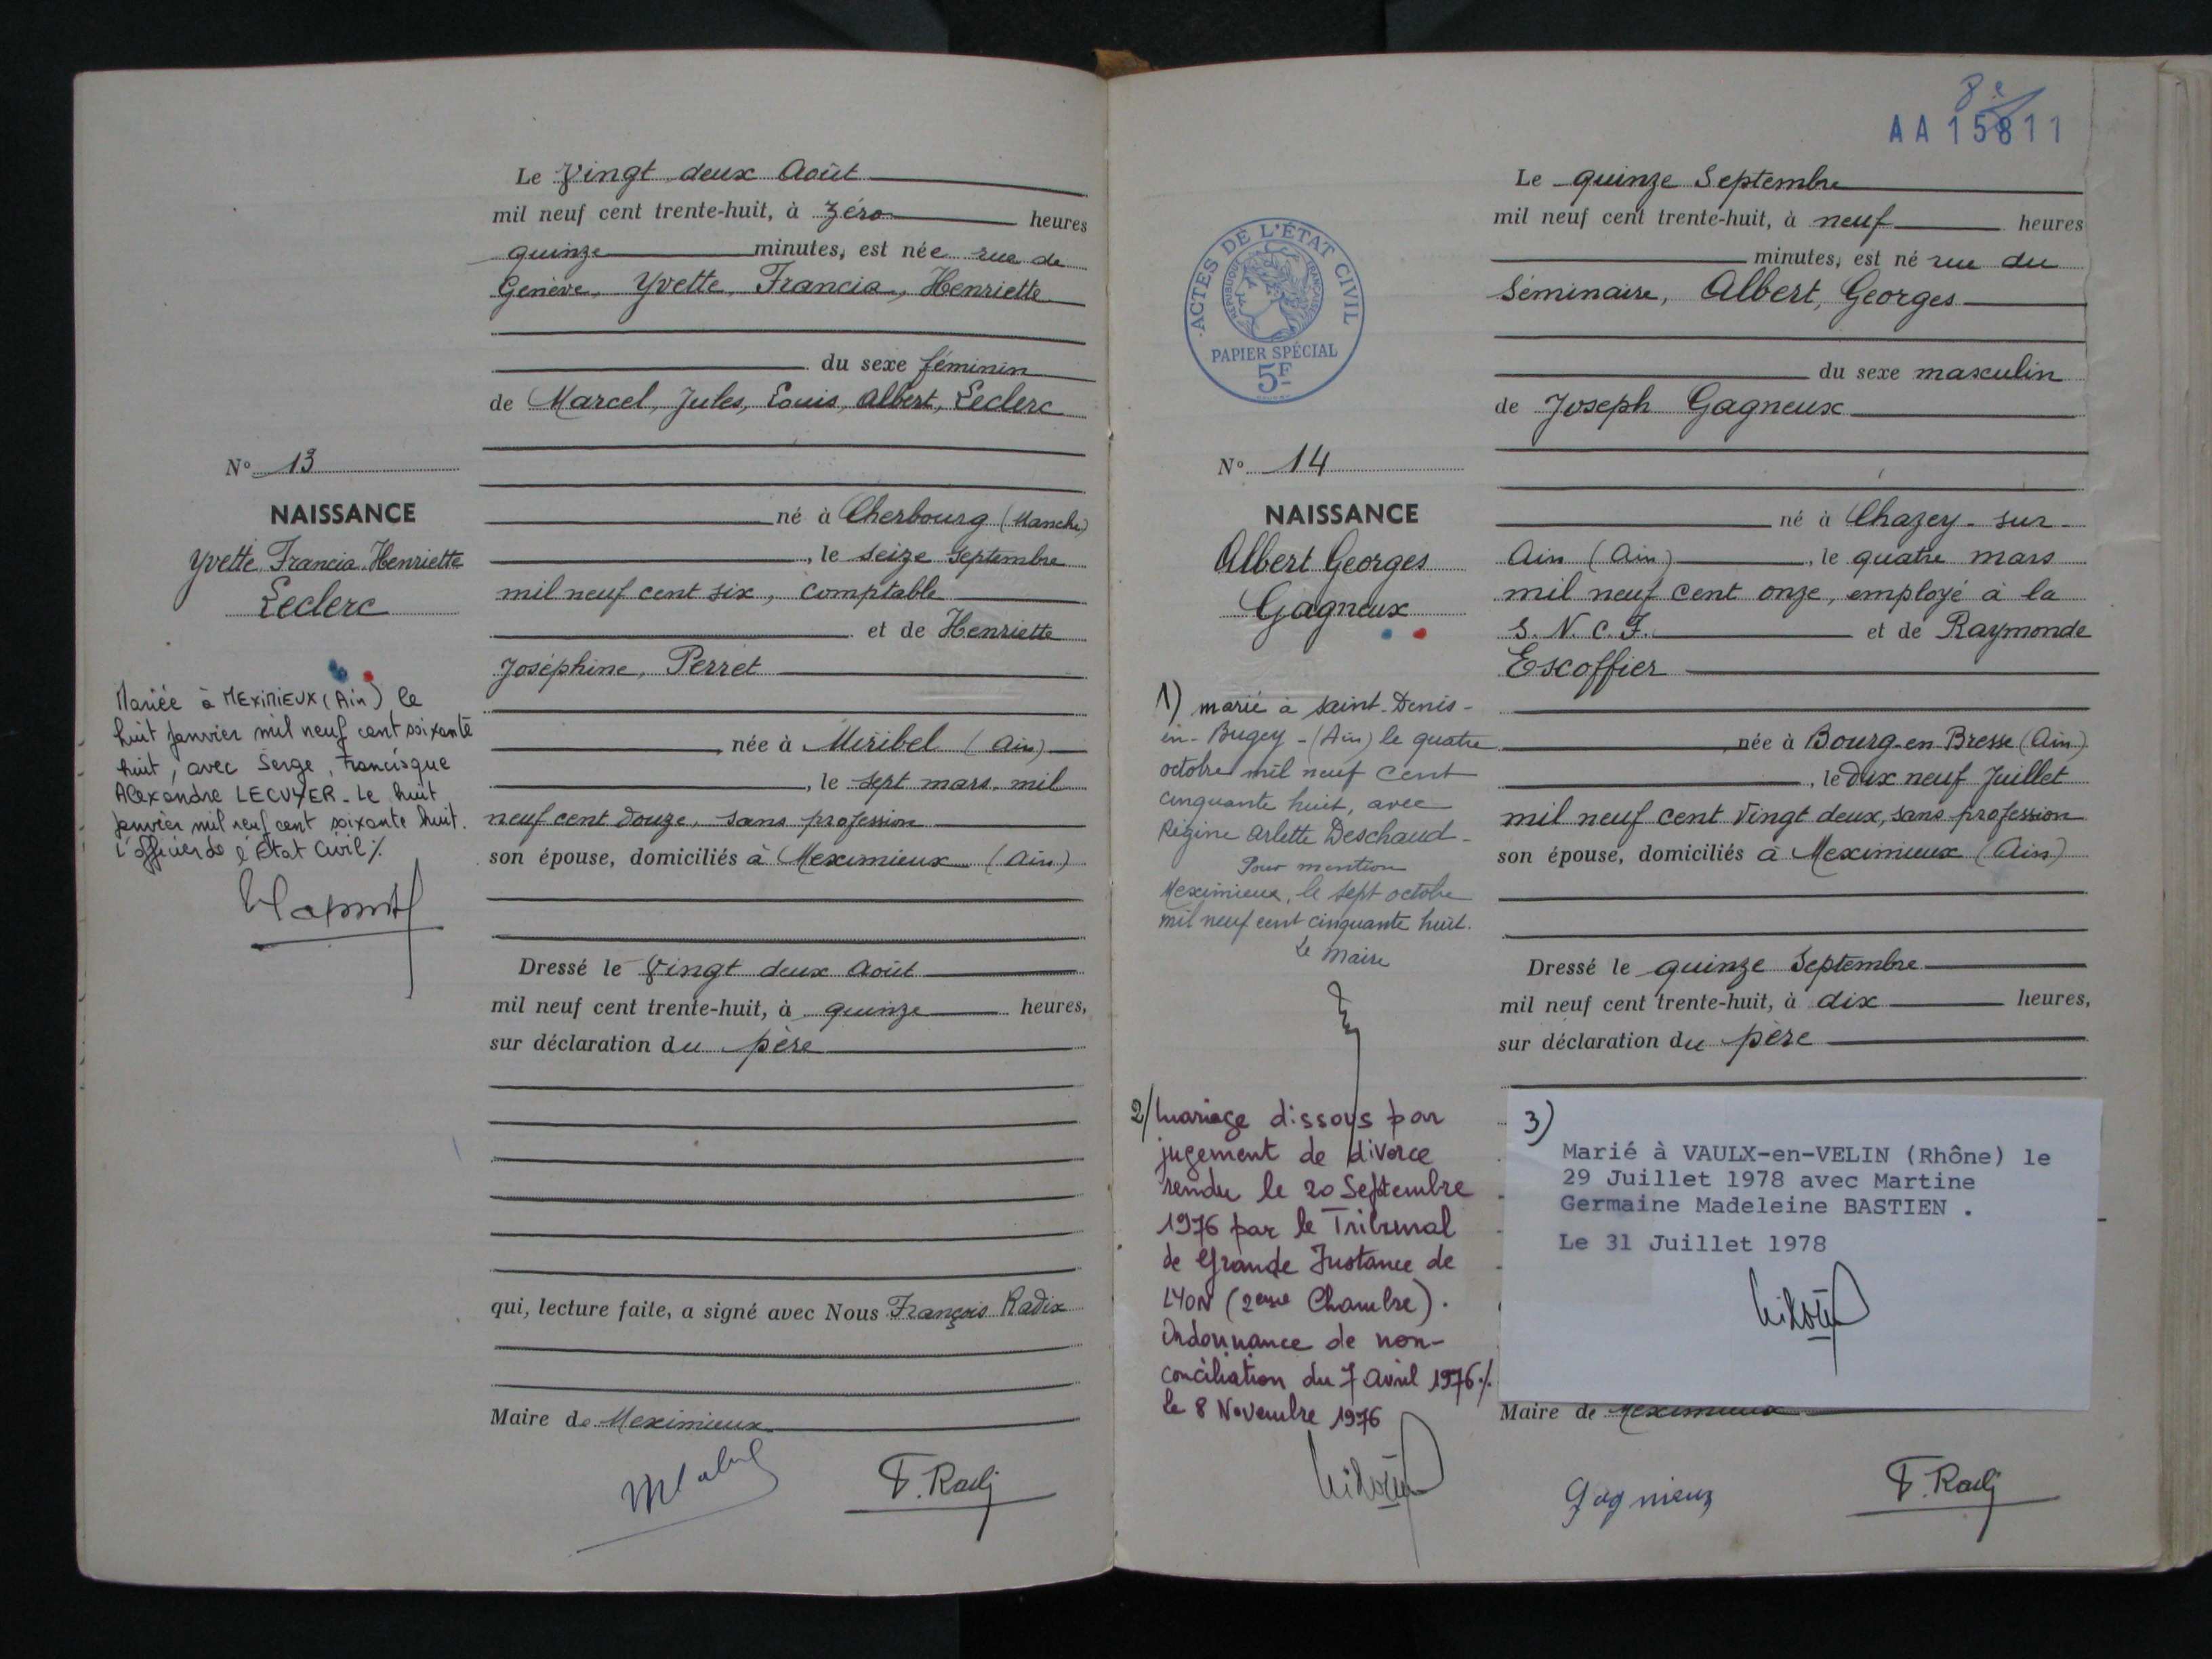 Le Vingt deux Août
mil neuf cent trente-huit, à zéro heures
quinze minutes, est née rue de
Genève, Yvette, Francia, Henriette
du sexe féminin
de Marcel, Jules, Louis, Albert, Leclerc
N° 13
NAISSANCE
Yvette Francia Henriette
Leclerc
né à Cherbourg (Manche)
, le seize Septembre
mil neuf cent six, comptable
et de Henriette
Joséphine, Perret
née à Miribel (Ain)
, le sept mars mil
neuf cent douze, sans profession
son épouse, domiciliés à Meximieux (Ain)
Mariée à MEXIMIEUX (Ain) le
huit Janvier mil neuf cent soixante
huit, avec Serge, Francisque
Alexandre LECUYER. Le huit
Janvier mil neuf cent soixante huit.
L'officier de l'Etat Civil %
Dressé le Vingt deux Août
mil neuf cent trente-huit, à quinze heures,
sur déclaration du père
qui, lecture faite, a signé avec Nous François Radix
Maire de Meximieux
F. Radix
8e
AA 15811
ACTES DE L'ÉTAT CIVIL
RÉPUBLIQUE FRANÇAISE
PAPIER SPÉCIAL
5F
Le quinze Septembre
mil neuf cent trente-huit, à neuf heures
minutes, est né rue du
Séminaire, Albert, Georges
du sexe masculin
de Joseph Gagneux
N° 14
NAISSANCE
Albert Georges
Gagneux
né à Chazey-sur-
Ain (Ain), le quatre mars
mil neuf cent onze, employé à la
S.N.C.F. et de Raymonde
Escoffier
née à Bourg-en-Bresse (Ain)
, le dix neuf Juillet
mil neuf cent Vingt deux, sans profession
son épouse, domiciliés à Meximieux (Ain)
1) marié à saint-Denis-
en-Bugey-(Ain) le quatre
octobre mil neuf cent
cinquante huit, avec
Régine Arlette Deschaud-
Pour mention
Meximieux, le sept octobre
mil neuf cent cinquante huit.
Le Maire
2/ Mariage dissous par
jugement de divorce
rendu le 20 Septembre
1976 par le Tribunal
de Grande Instance de
LYON (2ème Chambre).
Ordonnance de non-
conciliation du 7 Avril 1976 ./.
le 8 Novembre 1976
Dressé le quinze Septembre
mil neuf cent trente-huit, à dix heures,
sur déclaration du père
3)
Marié à VAULX-en-VELIN (Rhône) le
29 Juillet 1978 avec Martine
Germaine Madeleine BASTIEN .
Le 31 Juillet 1978
Maire de Meximieux
Gagnieux
F. Radix